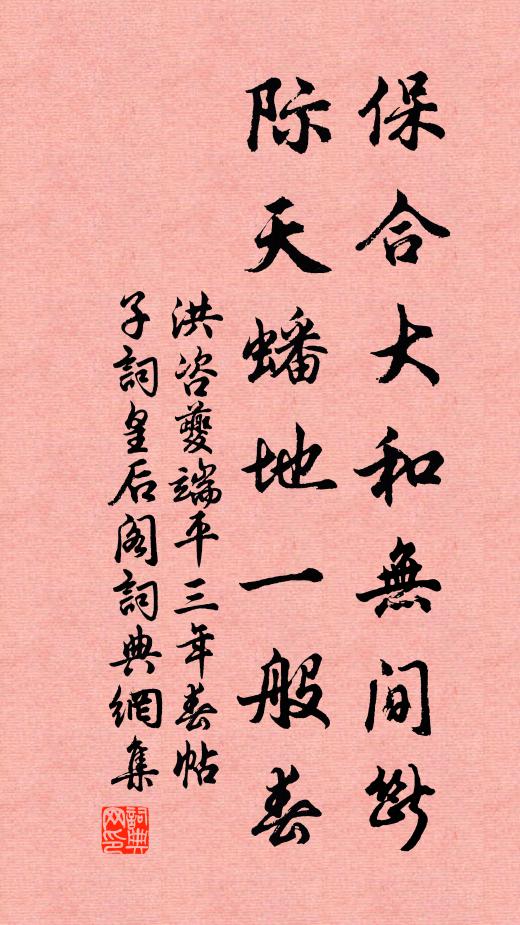 保合大和無间斷
际天蟠地一般春
洪咨夔端平三年春帖
子詞皇后阁詞典網集
詞典网印